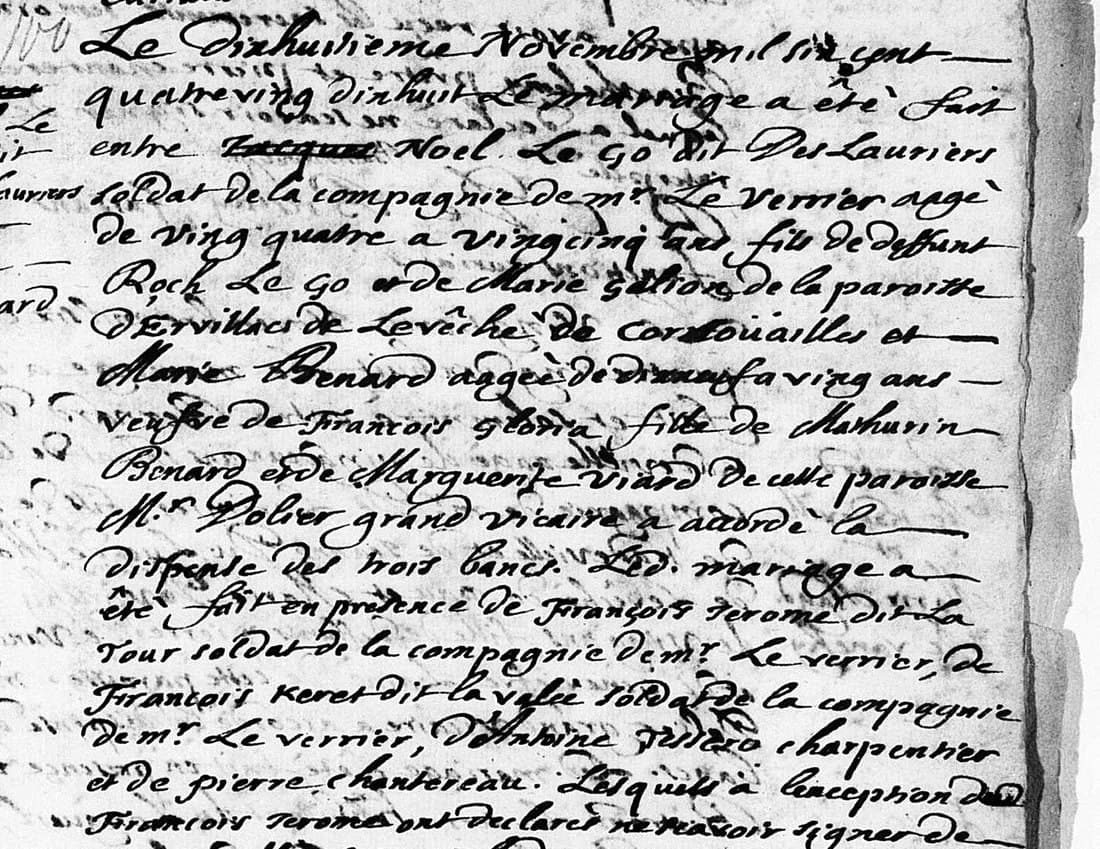 Le dixhuitieme Novembre mil six cent
quatreving dixhuit Le mariage a êtè fait
entre Jacques Noel Le Go dit DesLauriers
soldat de la compagnie de mr. Le Verrier aagè
de ving quatre a vingcinq ans fils de deffunt
Roch Le Go et de Marie de la paroisse
de Levêchè de Cornoüailles et
Marie Benard aageè de dixneuf a ving ans
veufve de François Gloria fille de Mathurin
Benard et de Marguerite Viard de cette paroisse
Mr. Dolier grand vicaire a accordè la
dispense des trois bancs. Led. mariage a
êtè fait en presence de François Jerome dit La
Tour soldat de la compagnie de mr. Le verrier, de
François Keret dit la valèe soldat de la compagnie
de mr. Le verrier, d'Antoine charpentier
et de pierre chantereau. Lesquels a lexception de
François Jerome ont declarès ne scavoir signer de
Le
it
auriers
ard